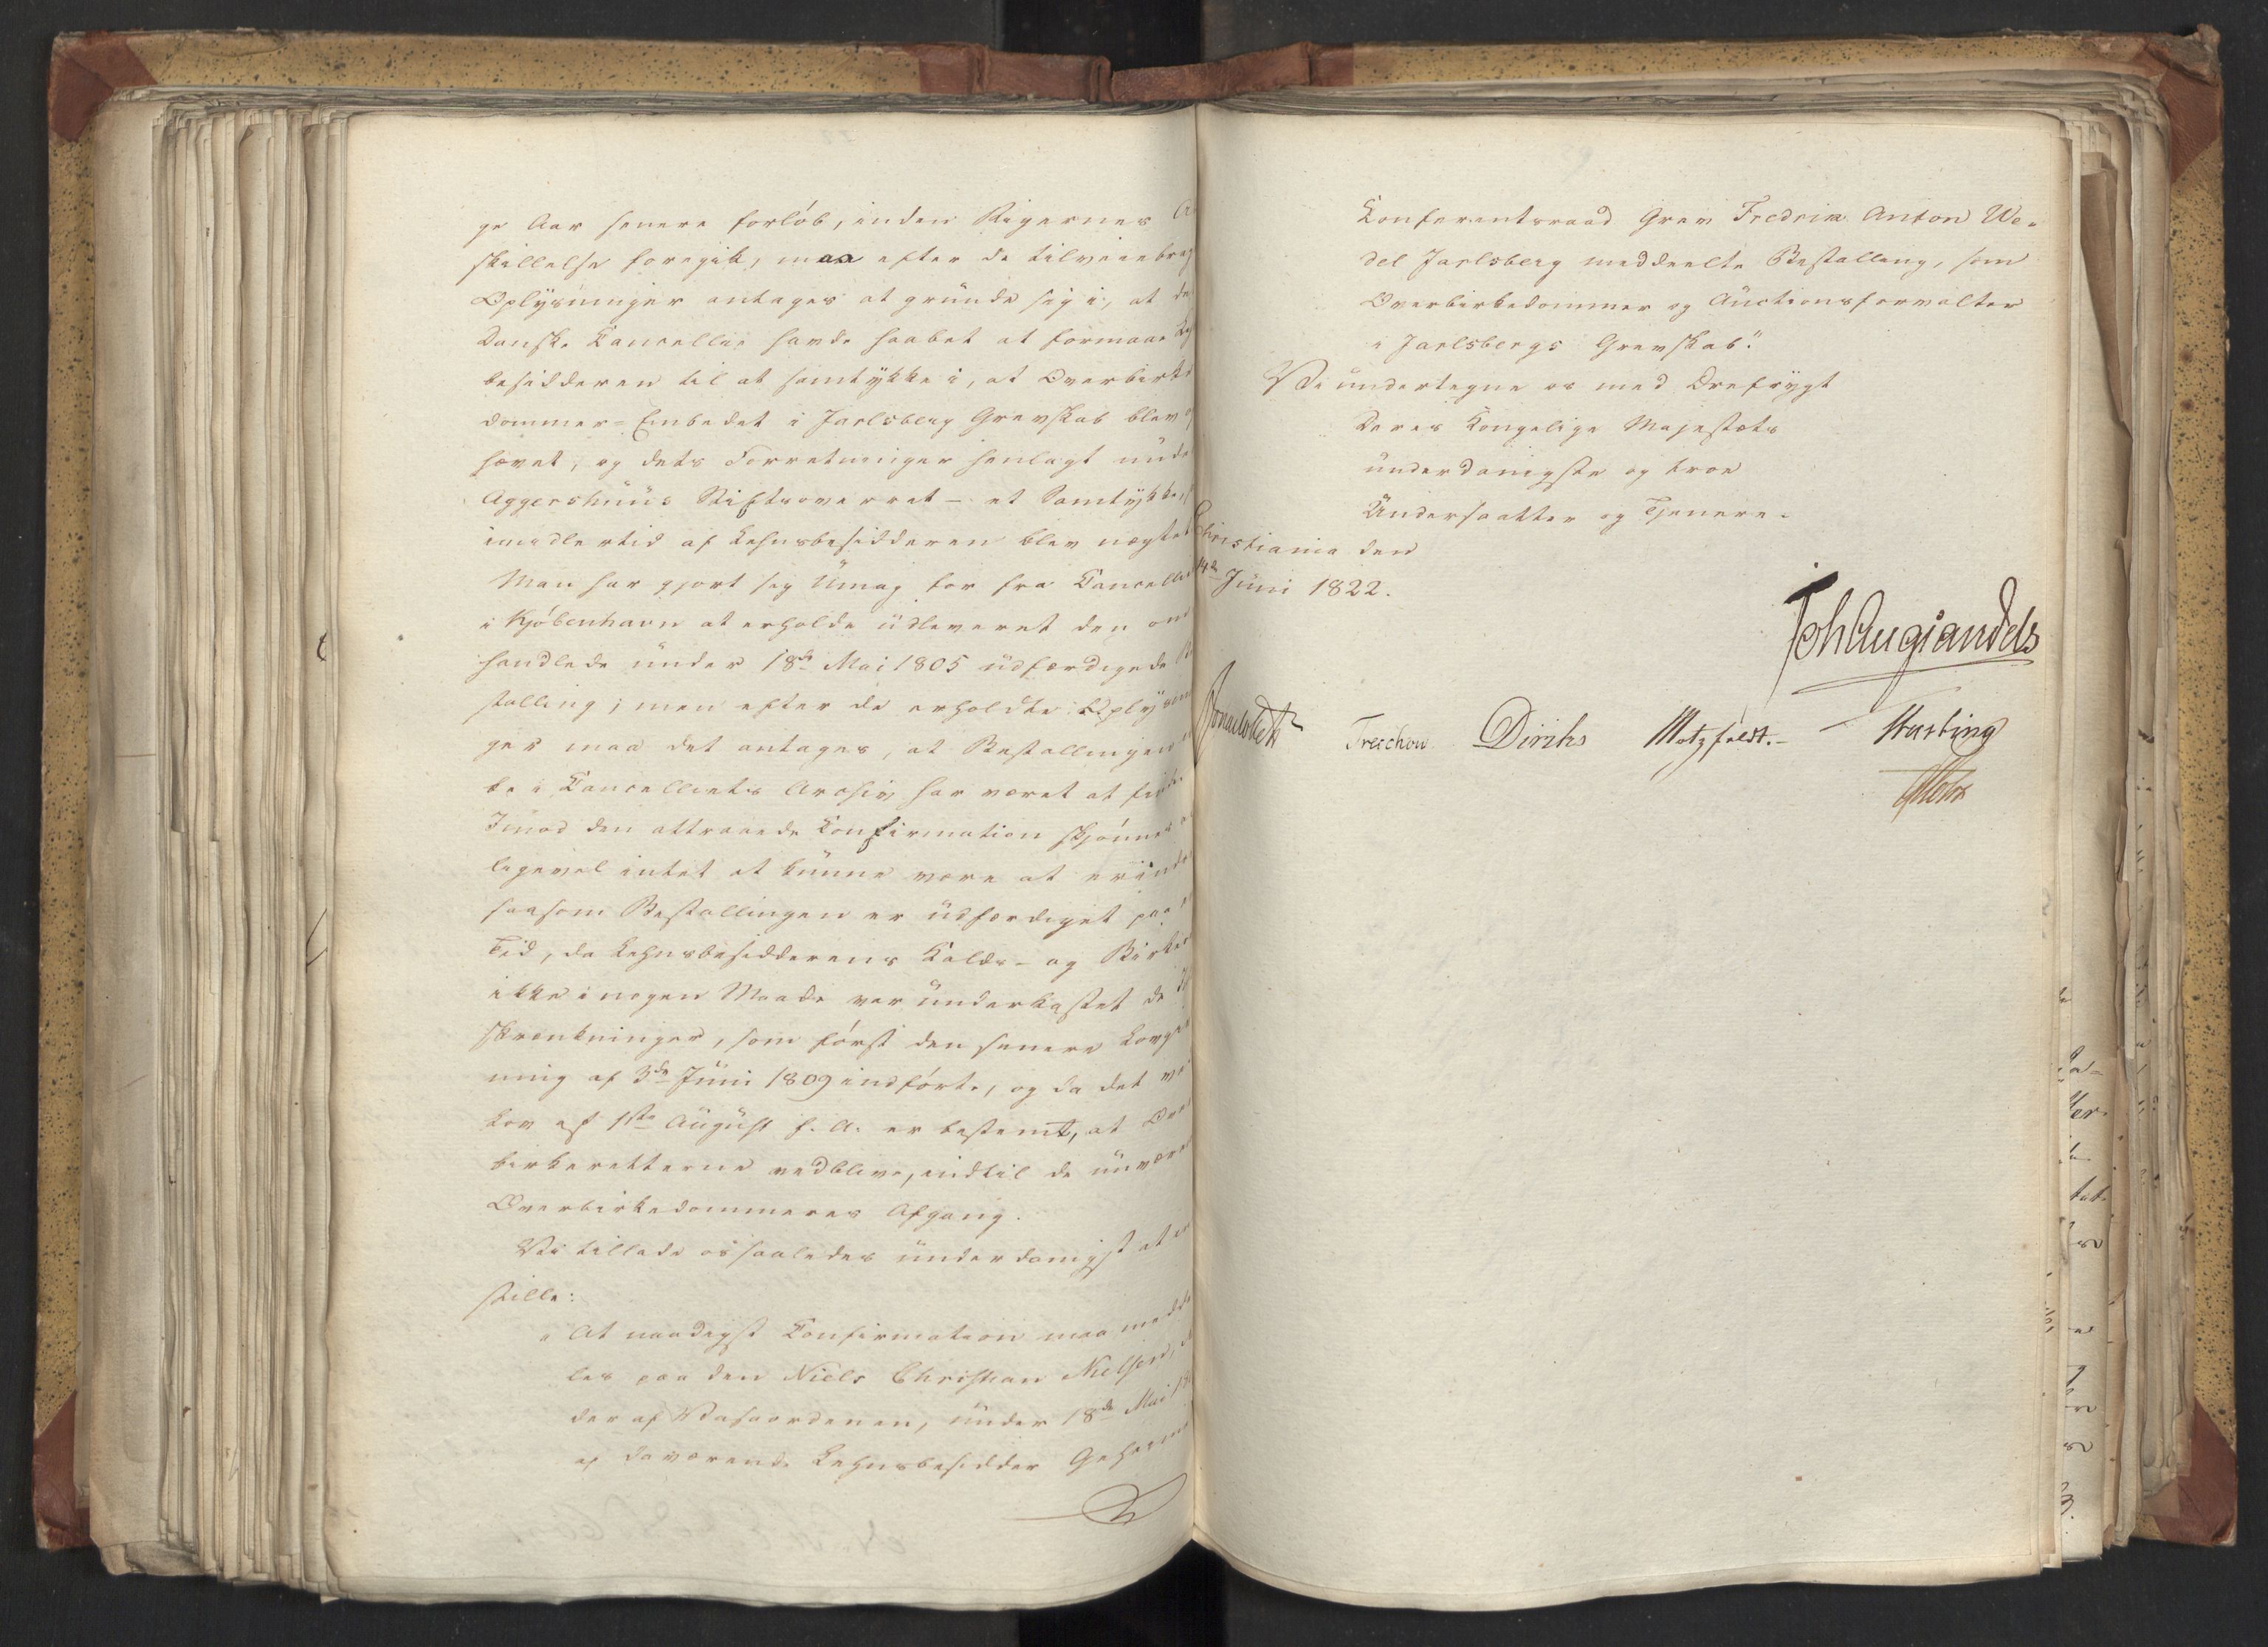 ge Aar senere forløb, inden Rigernes
skillelse foregik, maa efter de tilveiebrag
Oplysninger antages at grunde sig i, at de
danske Cancellie havde haabet at formaae
besidderen til at samtykke i, at Overbirke
dommer-Embedet i Jarlsberg Grevskab blev
hævet, og dets Forretninger henlagt unde
Aggershuus Stiftsoverret - et Samtykke,
imidlertid af Lehnsbesidderen blev nægtet
Man har gjort sig Umag for fra Cancellie
i Kjøbenhavn at erholde udleveret den om
handlede under 18de Mai 1805 udfærdigede
stalling; men efter de erholdte Oplysnin
ger maa det antages, at Bestallingen
ke i Cancelliets Archiv har været at finde
Imod den attraaede Confirmation skjønnes
ligevel intet at kunne være at erindre
saasom Bestallingen er udfærdiget paa
Tid, da Lehnsbesidderens Kalds- og Birke
ikke i nogen Maade var underkastet de
skrænkninger, som først den senere Lovgiv
ning af 3de Juni 1809 indførte, og da det ved
Lov af 1ste August f. A. er bestemt, at Over
birkeretterne vedblive, indtil de nuværen
Overbirkedommeres Afgang.
Vi tillade os saaledes underdanigst at
stille:
"At naadigst Confirmation maa medde
les paa den Niels Christian Nielsen,
der af Vasaordenen, under 18de Mai
af daværende Lehnsbesidder Geheime
Conferentsraad Grev Fredrik Anton We-
del Jarlsberg meddeelte Bestalling, som
Overbirkedommer og Auctionsforvalter
i Jarlsbergs Grevskab."
Vi undertegne os med Ærefrygt
Deres Kongelige Majestæts
underdanigste og troe
Undersaatter og Tjenere.
Christiania den
14de Juni 1822.
Joh Aug Sandels
Sommerhielm
Treschow Diriks Motzfeldt.- Hasting
Holst